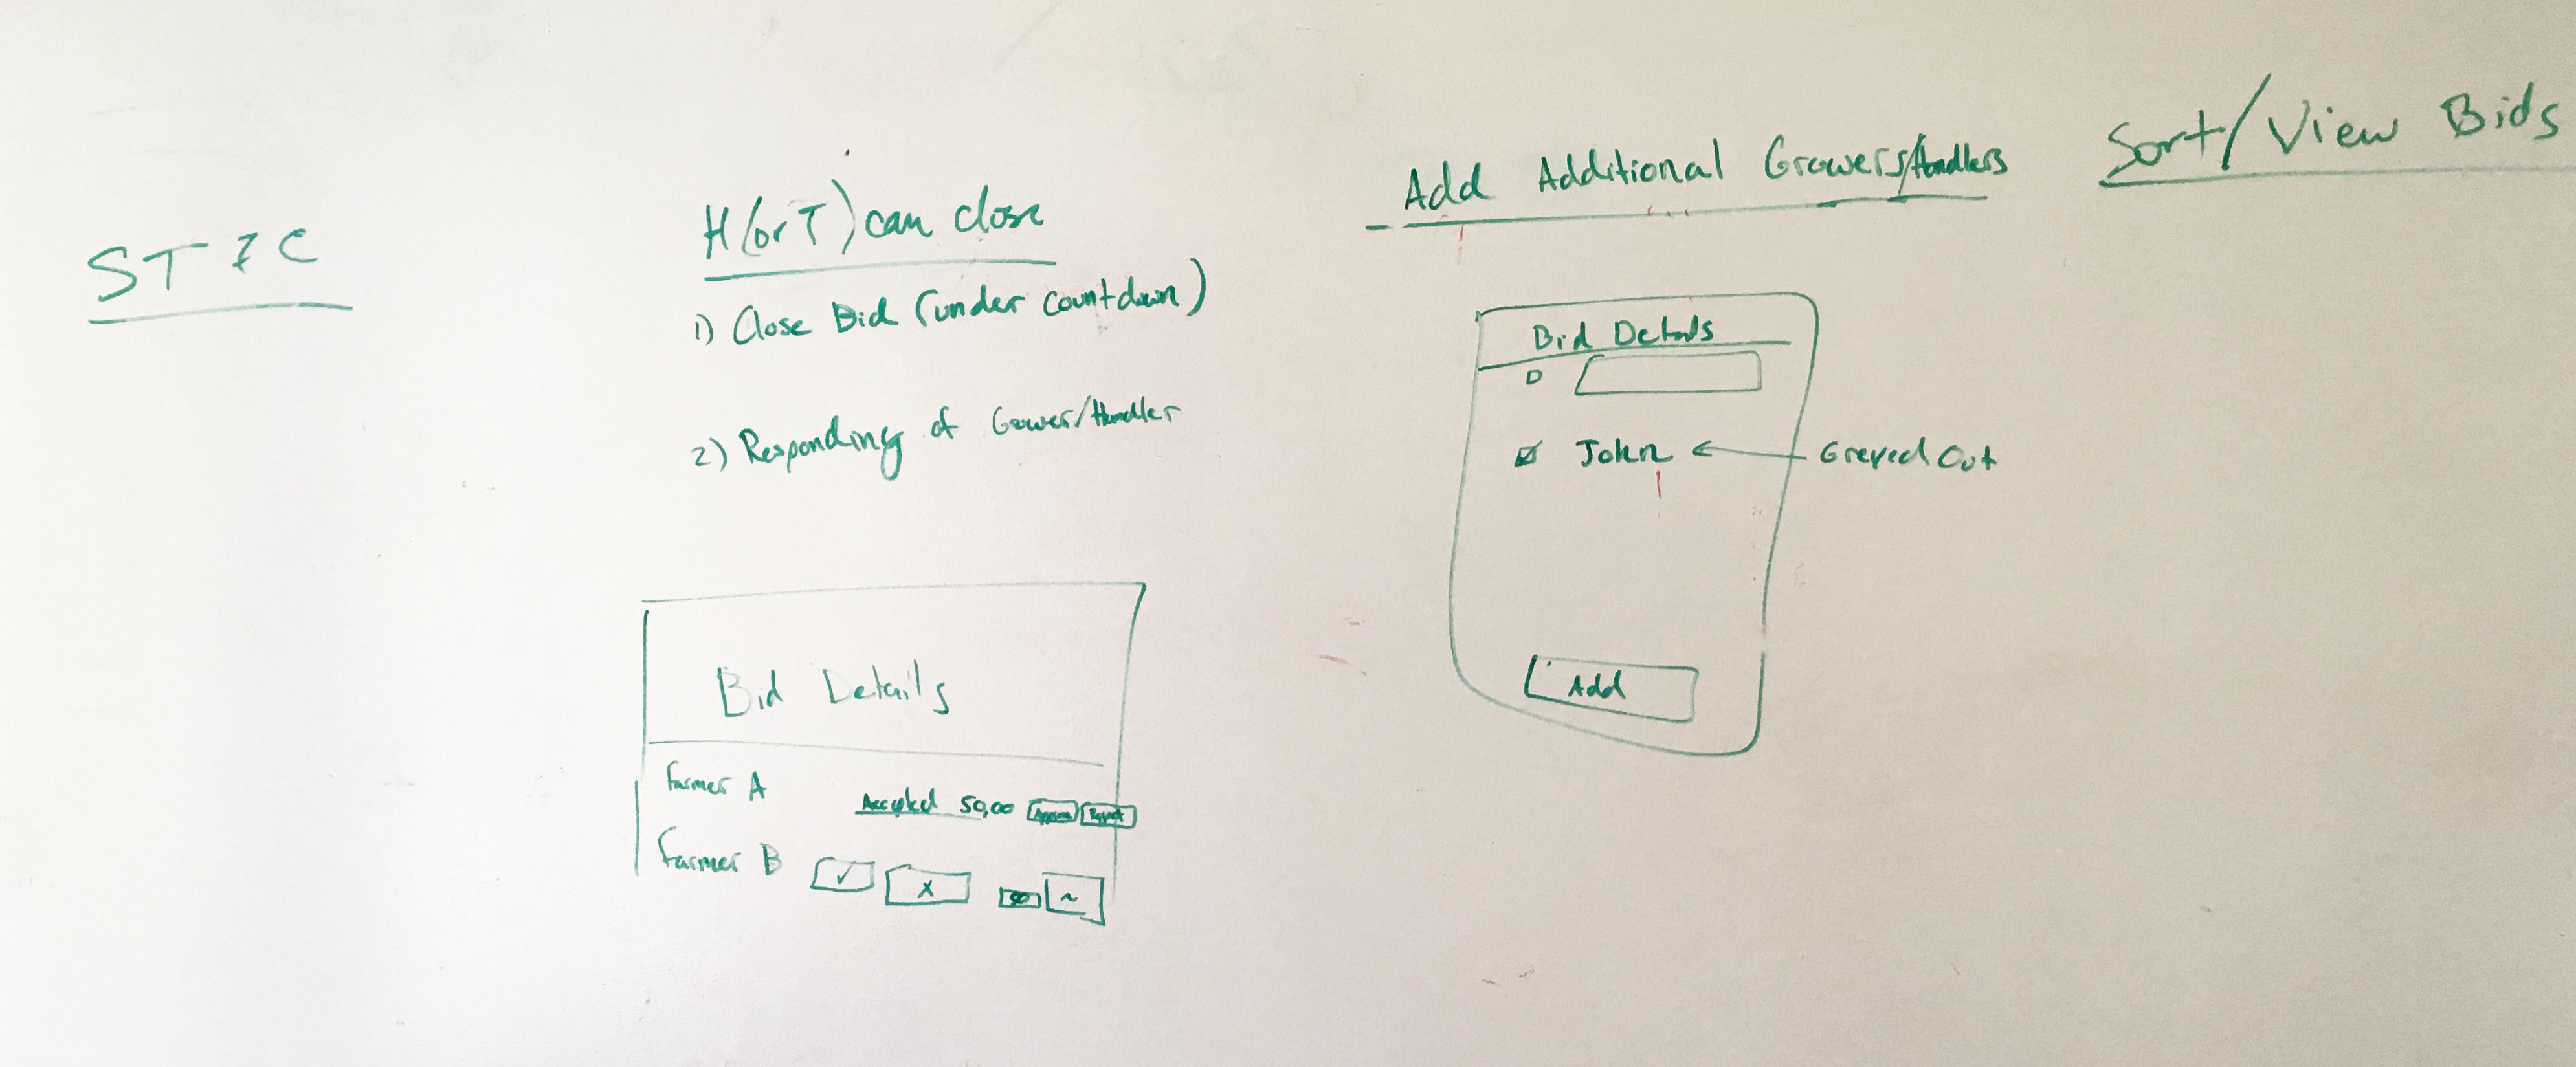 H (or T) can close
1) Close Bid (under countdown)
2) Responding of Gower/Handler
Bid Details
Farmer A Accepted 50,00 Approve Reject
Farmer B ✓ x ~
Add Additional Growers/Handlers
Bid Details
John ← Greyed Out
Add
Sort/View Bids